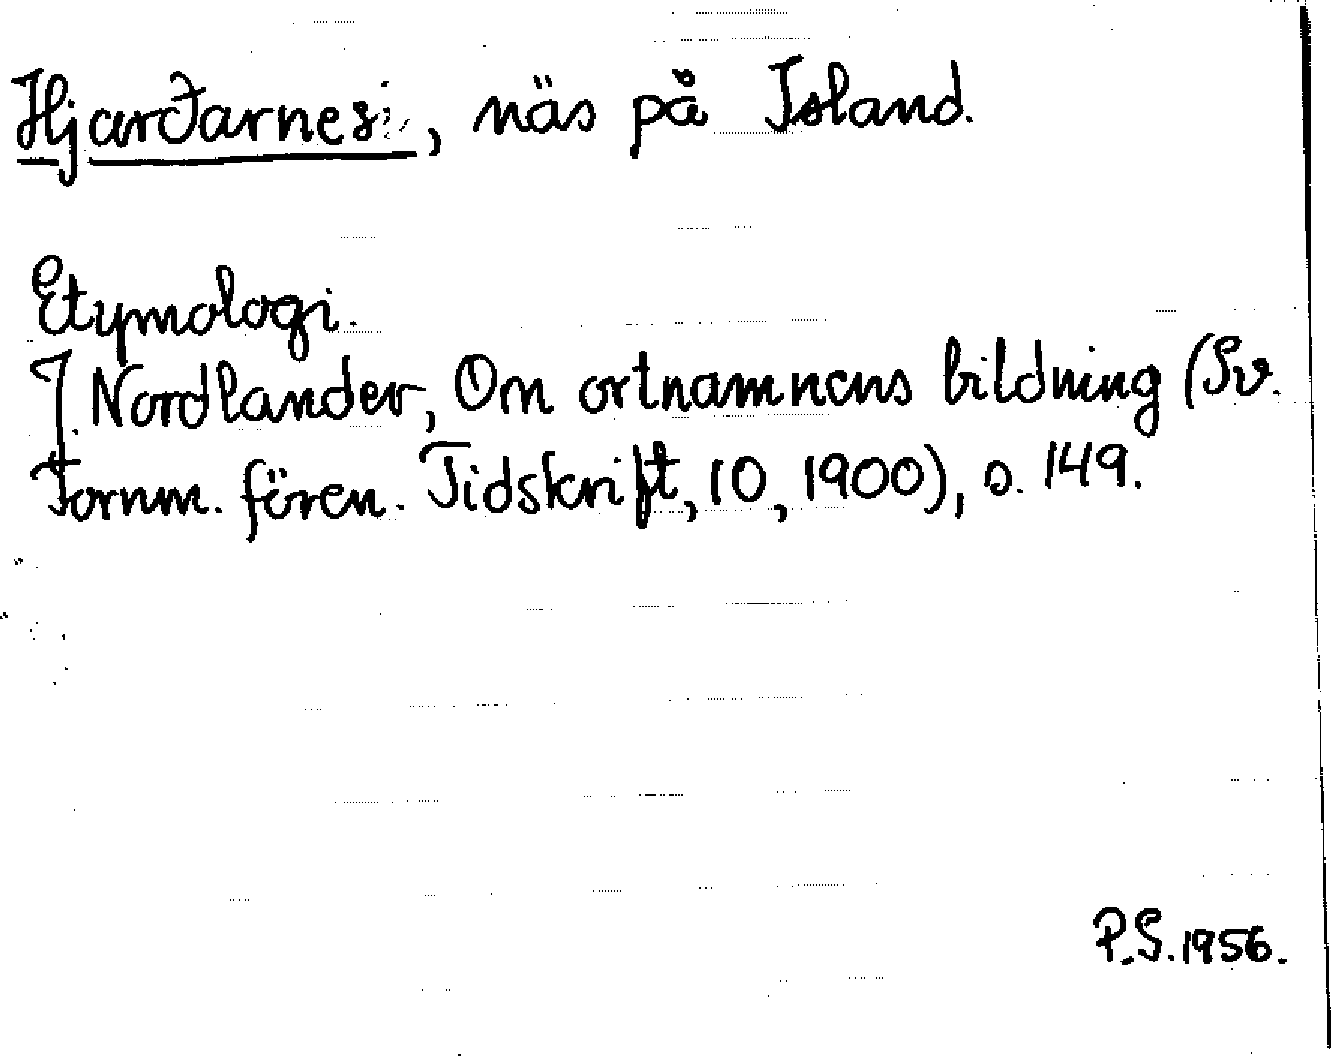 Hjarðarnes, näs på Island.
Etymologi.
J. Nordlander, Om ortnamnens bildning (Sv.
Fornm. fören. Tidskrift, 10, 1900), s. 149.
P.S. 1956.